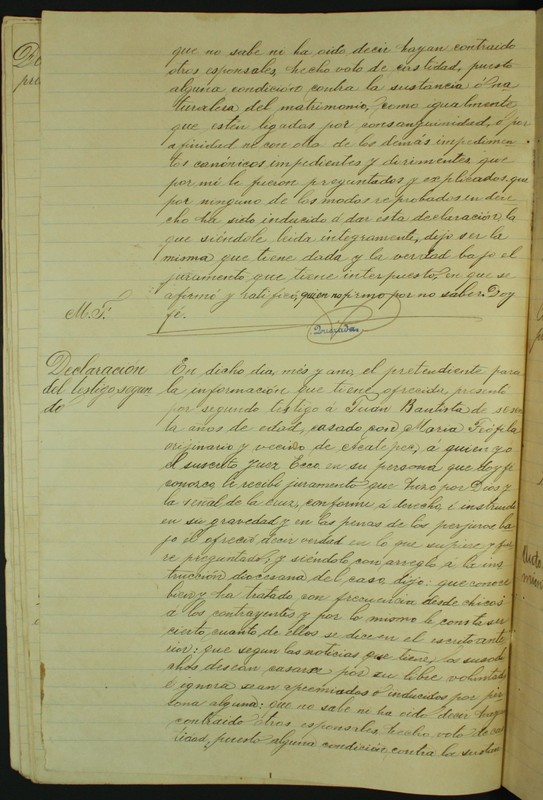 que no sabe ni ha oido decir hayan contraido
otros esponsales, hecho voto de castidad, puesto
alguna condición contra la sustancia ó na
turaleza del matrimonio, como igualmente
que estén ligados por consanguinidad, o por
afinidad ni con otro de los demás impedimen
tos canónicos impedientes y dirimentes que
por mi le fueron preguntados y explicados, que
por ninguno de los modos reprobados en dere
cho ha sido inducido á dar esta declaración, la
que siéndole leida integramente, dijo ser la
misma que tiene dada y la verdad bajo el
juramento que tiene interpuesto, en que se
afirmó y ratificó, quien no firmo por no saber. Doy
M. F. fé.
Quezada.
Declaración
del testigo segun
do
En dicho dia, més y año, el pretendiente para
la información que tiene ofrecida, presentó
por segundo testigo á Juan Bautista de sesen
ta años de edad, casado con Maria Teófila
originario y vecino de Acatepec, á quien yo
el suscrito Juez Ecco. en su persona que doy fé
conozco, le recibí juramento que hizo por Dios y
la señal de la cruz, conforme á derecho, é instruido
en su gravedad y en las penas de los perjuros ba
jo él ofreció decir verdad en lo que supiere y fue
re preguntado, y siéndolo con arreglo á la ins
trucción diocesana del caso, dijo: que conoce
bien y ha tratado con frecuencia desde chicos
a los contrayentes y por lo mismo le consta ser
cierto, cuanto de ellos se dice en el escrito ante
rior: que segun las noticias que tiene, los susodi
chos desean casarse por su libre voluntad
é ignora sean apremiados o inducidos por per
sona alguna: que no sabe ni ha oido decir hayan
contraido otros esponsales, hecho voto de cas
tidad, puesto alguna condición contra la sustan